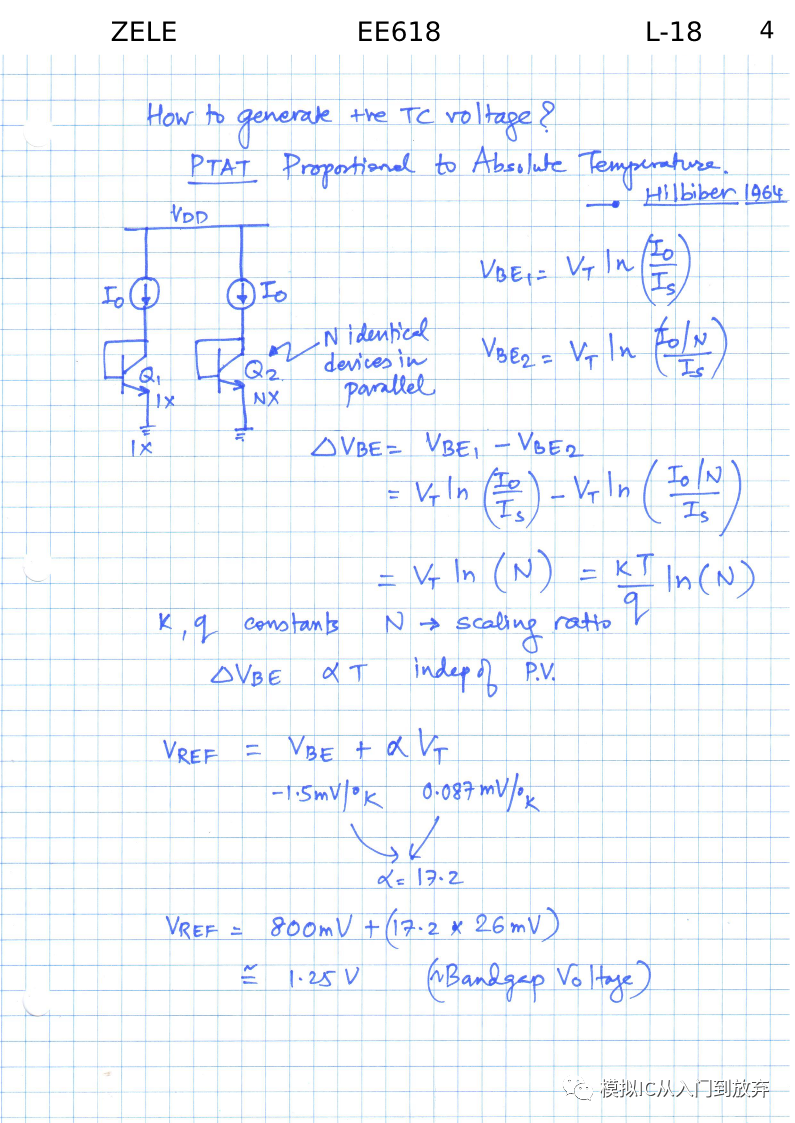 ZELE EE618 L-18 4
How to generate +ve TC voltage?
PTAT Proportional to Absolute Temperature.
Hilbiber 1964
VDD
I₀ I₀
N identical
devices in
parallel
Q₁ Q₂
1X NX
1X
V_BE₁ = V_T ln (I₀/I_S)
V_BE₂ = V_T ln ((I₀/N)/I_S)
ΔV_BE = V_BE₁ - V_BE₂
= V_T ln (I₀/I_S) - V_T ln ((I₀/N)/I_S)
= V_T ln (N) = KT/q ln(N)
K, q constants N → scaling ratio
ΔV_BE α T indep of P.V.
V_REF = V_BE + α V_T
-1.5mV/°K 0.087mV/°K
α = 17.2
V_REF = 800mV + (17.2 × 26mV)
≅ 1.25 V (~Bandgap Voltage)
模拟IC从入门到放弃